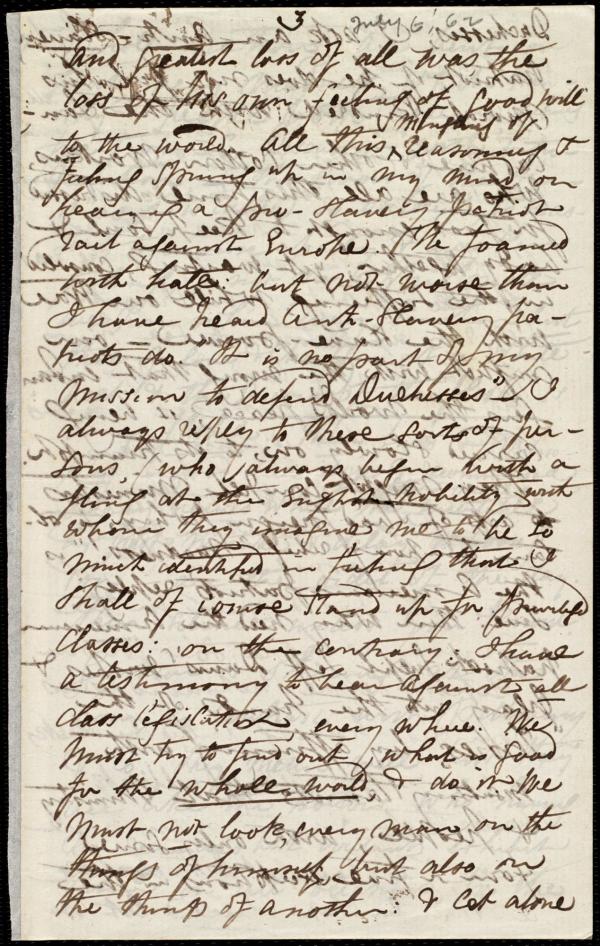 3 July 6, '62
And greatest loss of all was the
loss of his own feeling of good will
to the world. All this mingling of reasoning &
feeling sprung up in my mind on
hearing a pro-Slavery patriot
rail against Europe. He foamed
with hate: but not worse than
I have heard Anti-Slavery pa-
triots do. "It is no part of my
mission to defend Duchesses" - I
always reply to these sorts of per-
sons, (who) always begin with a
fling at the English Nobility with
whom they imagine me to be so
much identified in feeling that I
shall of course stand up for privileged
Classes: on the contrary, I have
a testimony to bear against all
class legislation, every where. We
must try to find out, what is good
for the whole world, & do it. We
must not look, every man on the
things of himself, but also on
the things of another: & let alone